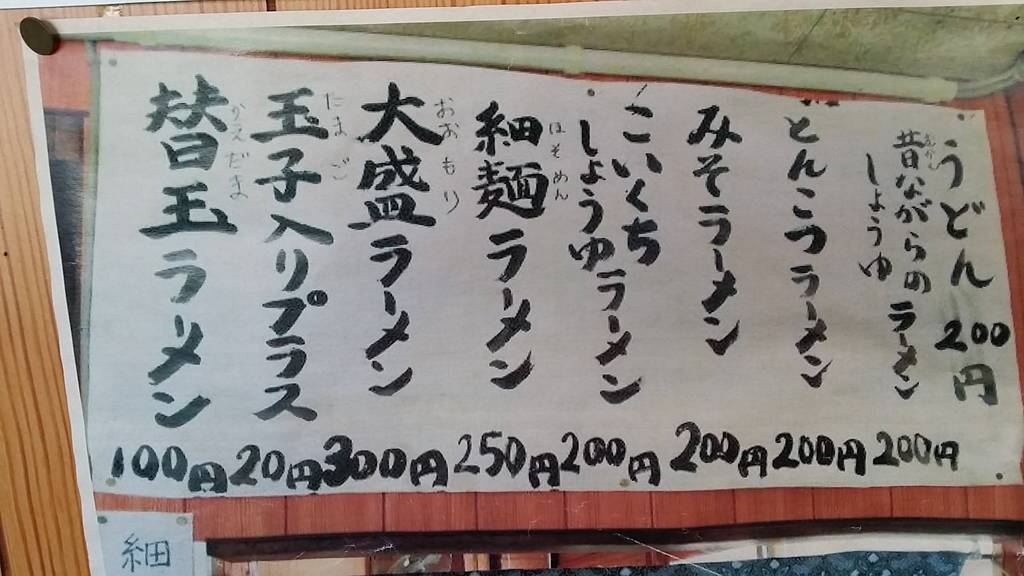 うどん 200円
昔ながらの
むかし
しょうゆ
ラーメン
200円
とんこつラーメン
200円
みそラーメン
200円
こいくち
しょうゆ
ラーメン
200円
ほそめん
細麺ラーメン
250円
おおもり
大盛ラーメン
300円
たまご
玉子入りプラス
20円
かえだま
替玉ラーメン
100円
細